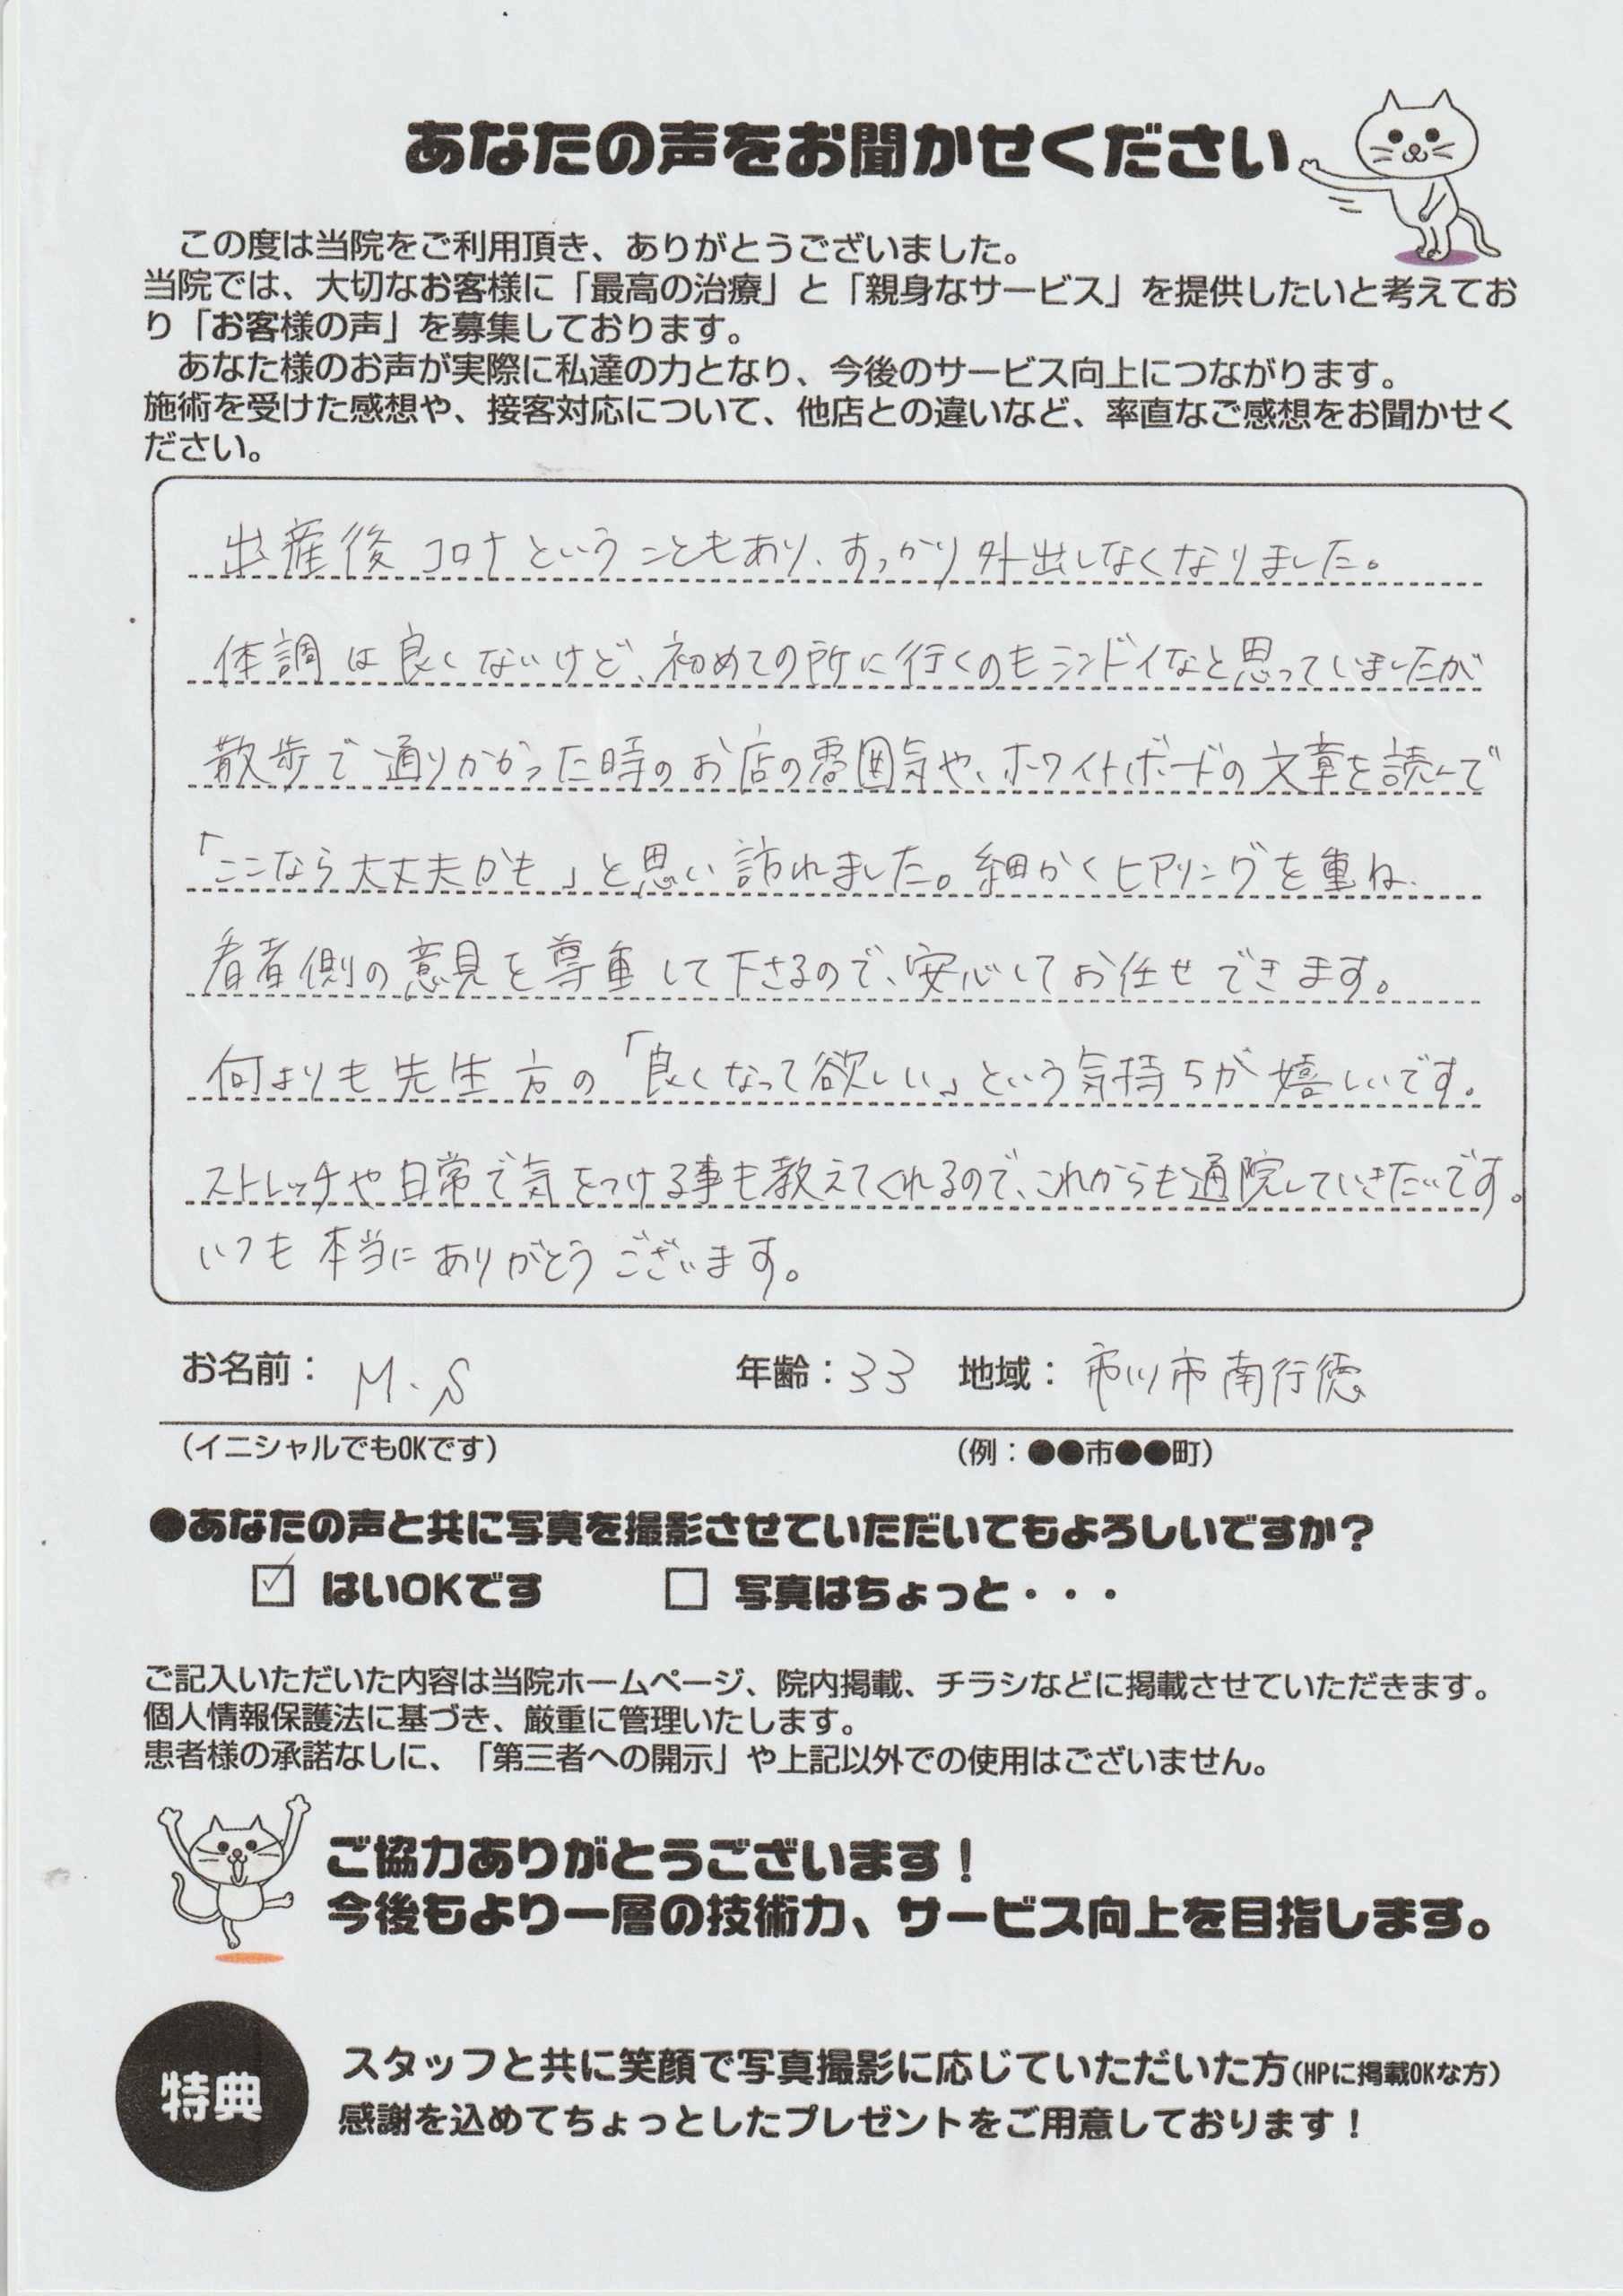 あなたの声をお聞かせください
この度は当院をご利用頂き、ありがとうございました。
当院では、大切なお客様に「最高の治療」と「親身なサービス」を提供したいと考えてお
り「お客様の声」を募集しております。
あなた様のお声が実際に私達の力となり、今後のサービス向上につながります。
施術を受けた感想や、接客対応について、他店との違いなど、率直なご感想をお聞かせく
ださい。
出産後コロナということもあり、すっかり外出しなくなりました。
体調は良くないけど、初めての所に行くのもシンドイなと思っていましたが
散歩で通りかかった時のお店の雰囲気や、ホワイトボードの文章を読んで
「ここなら大丈夫かも」と思い訪れました。細かくヒアリングを重ね、
看者側の意見を尊重して下さるので、安心してお任せできます。
何よりも先生方の「良くなって欲しい」という気持ちが嬉しいです。
ストレッチや日常で気をつける事も教えてくれるので、これからも通院していきたいです。
いつも本当にありがとうございます。
お名前： M.S 年齢：33 地域： 市川市南行徳
（イニシャルでもOKです） （例：●●市●●町）
●あなたの声と共に写真を撮影させていただいてもよろしいですか？
☑ はいOKです □ 写真はちょっと・・・
ご記入いただいた内容は当院ホームページ、院内掲載、チラシなどに掲載させていただきます。
個人情報保護法に基づき、厳重に管理いたします。
患者様の承諾なしに、「第三者への開示」や上記以外での使用はございません。
ご協力ありがとうございます！
今後もより一層の技術力、サービス向上を目指します。
特典
スタッフと共に笑顔で写真撮影に応じていただいた方（HPに掲載OKな方）
感謝を込めてちょっとしたプレゼントをご用意しております！